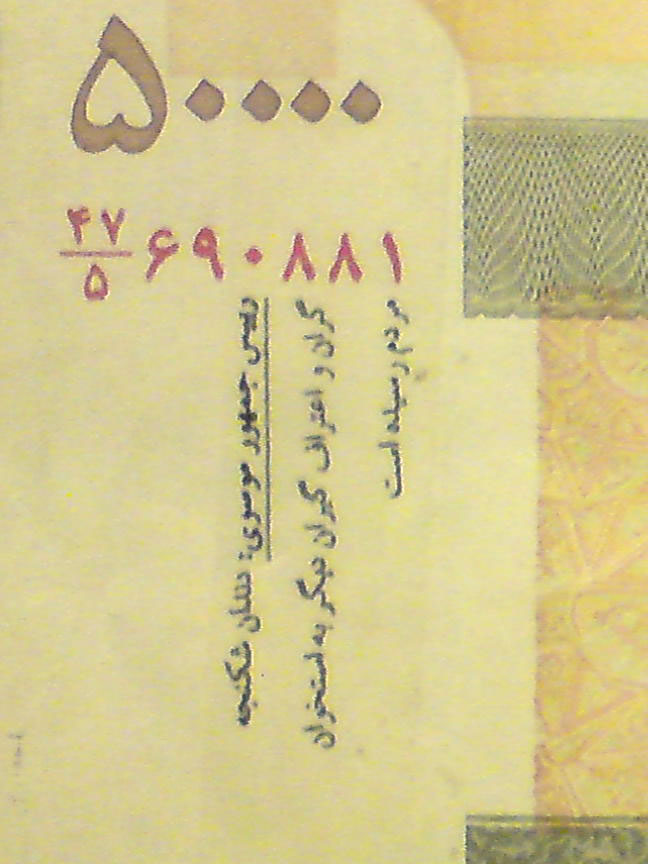 ۵۰۰۰۰
۴۷/۵ ۶۹۰۸۸۱
رئیس جمهور موسوی: دندان شکنجه
گران و اعتراف گیران دیگر به استخوان
مردم رسیده است